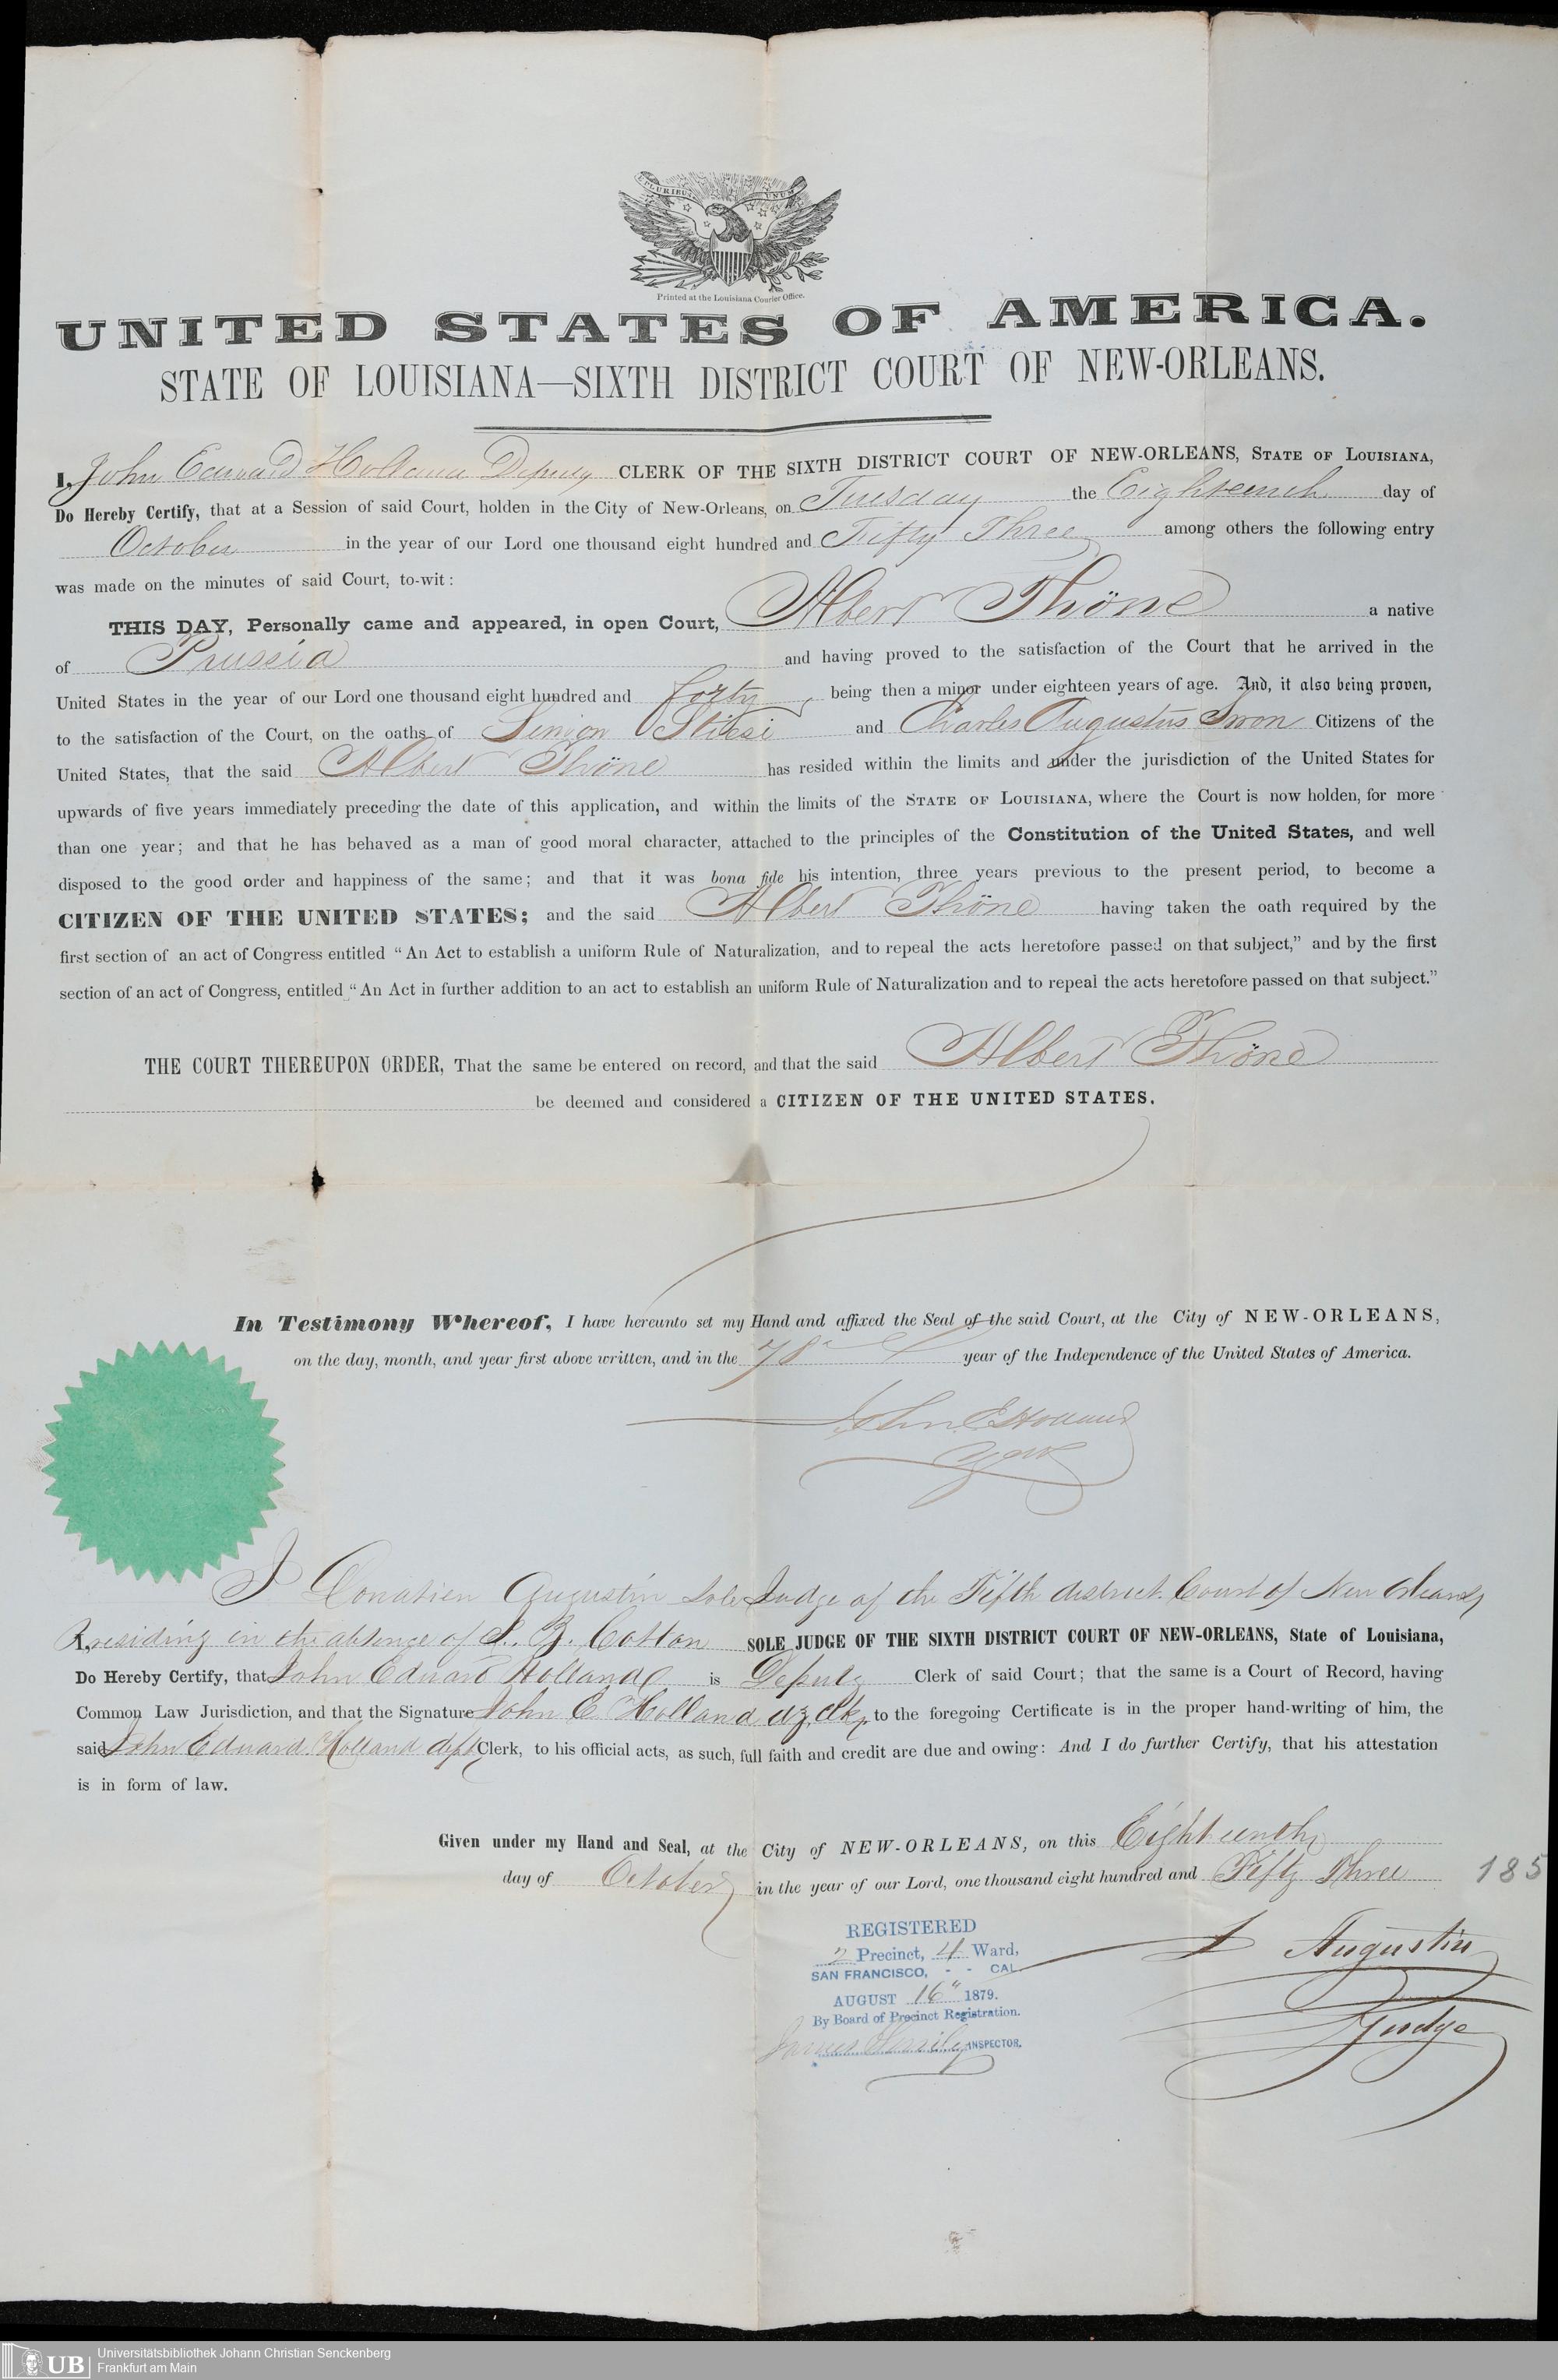 E PLURIBUS UNUM
Printed at the Louisiana Courier Office.
UNITED STATES OF AMERICA.
STATE OF LOUISIANA—SIXTH DISTRICT COURT OF NEW-ORLEANS.
I, John Edward Holland Deputy CLERK OF THE SIXTH DISTRICT COURT OF NEW-ORLEANS, STATE OF LOUISIANA,
Do Hereby Certify, that at a Session of said Court, holden in the City of New-Orleans, on Tuesday the Eighteenth day of
October in the year of our Lord one thousand eight hundred and Fifty Three among others the following entry
was made on the minutes of said Court, to-wit:
THIS DAY, Personally came and appeared, in open Court, Albert Thöne a native
of Prussia and having proved to the satisfaction of the Court that he arrived in the
United States in the year of our Lord one thousand eight hundred and forty, being then a minor under eighteen years of age. And, it also being proven,
to the satisfaction of the Court, on the oaths of and Charles Augustus Citizens of the
United States, that the said Albert Thöne has resided within the limits and under the jurisdiction of the United States for
upwards of five years immediately preceding the date of this application, and within the limits of the STATE OF LOUISIANA, where the Court is now holden, for more
than one year; and that he has behaved as a man of good moral character, attached to the principles of the Constitution of the United States, and well
disposed to the good order and happiness of the same; and that it was bona fide his intention, three years previous to the present period, to become a
CITIZEN OF THE UNITED STATES; and the said Albert Thöne having taken the oath required by the
first section of an act of Congress entitled "An Act to establish a uniform Rule of Naturalization, and to repeal the acts heretofore passed on that subject," and by the first
section of an act of Congress, entitled "An Act in further addition to an act to establish an uniform Rule of Naturalization and to repeal the acts heretofore passed on that subject."
THE COURT THEREUPON ORDER, That the same be entered on record, and that the said Albert Thöne
be deemed and considered a CITIZEN OF THE UNITED STATES.
In Testimony Whereof, I have hereunto set my Hand and affixed the Seal of the said Court, at the City of NEW-ORLEANS,
on the day, month, and year first above written, and in the 78th year of the Independence of the United States of America.
John E Holland
I Donatien Augustin Sole Judge of the Fifth district Court of New Orleans
Presiding in the absence of S. Z. Cotton SOLE JUDGE OF THE SIXTH DISTRICT COURT OF NEW-ORLEANS, State of Louisiana,
Do Hereby Certify, that John Eduard Holland is Deputy Clerk of said Court; that the same is a Court of Record, having
Common Law Jurisdiction, and that the Signature John E Holland dy clk to the foregoing Certificate is in the proper hand-writing of him, the
said John Eduard Holland dept Clerk, to his official acts, as such, full faith and credit are due and owing: And I do further Certify, that his attestation
is in form of law.
Given under my Hand and Seal, at the City of NEW-ORLEANS, on this Eighteenth
day of October in the year of our Lord, one thousand eight hundred and Fifty Three 185
REGISTERED
2 Precinct, 4 Ward,
SAN FRANCISCO, - - CAL.
AUGUST 16" 1879.
By Board of Precinct Registration.
James INSPECTOR.
D Augustin
Judge
UB
Universitätsbibliothek Johann Christian Senckenberg
Frankfurt am Main